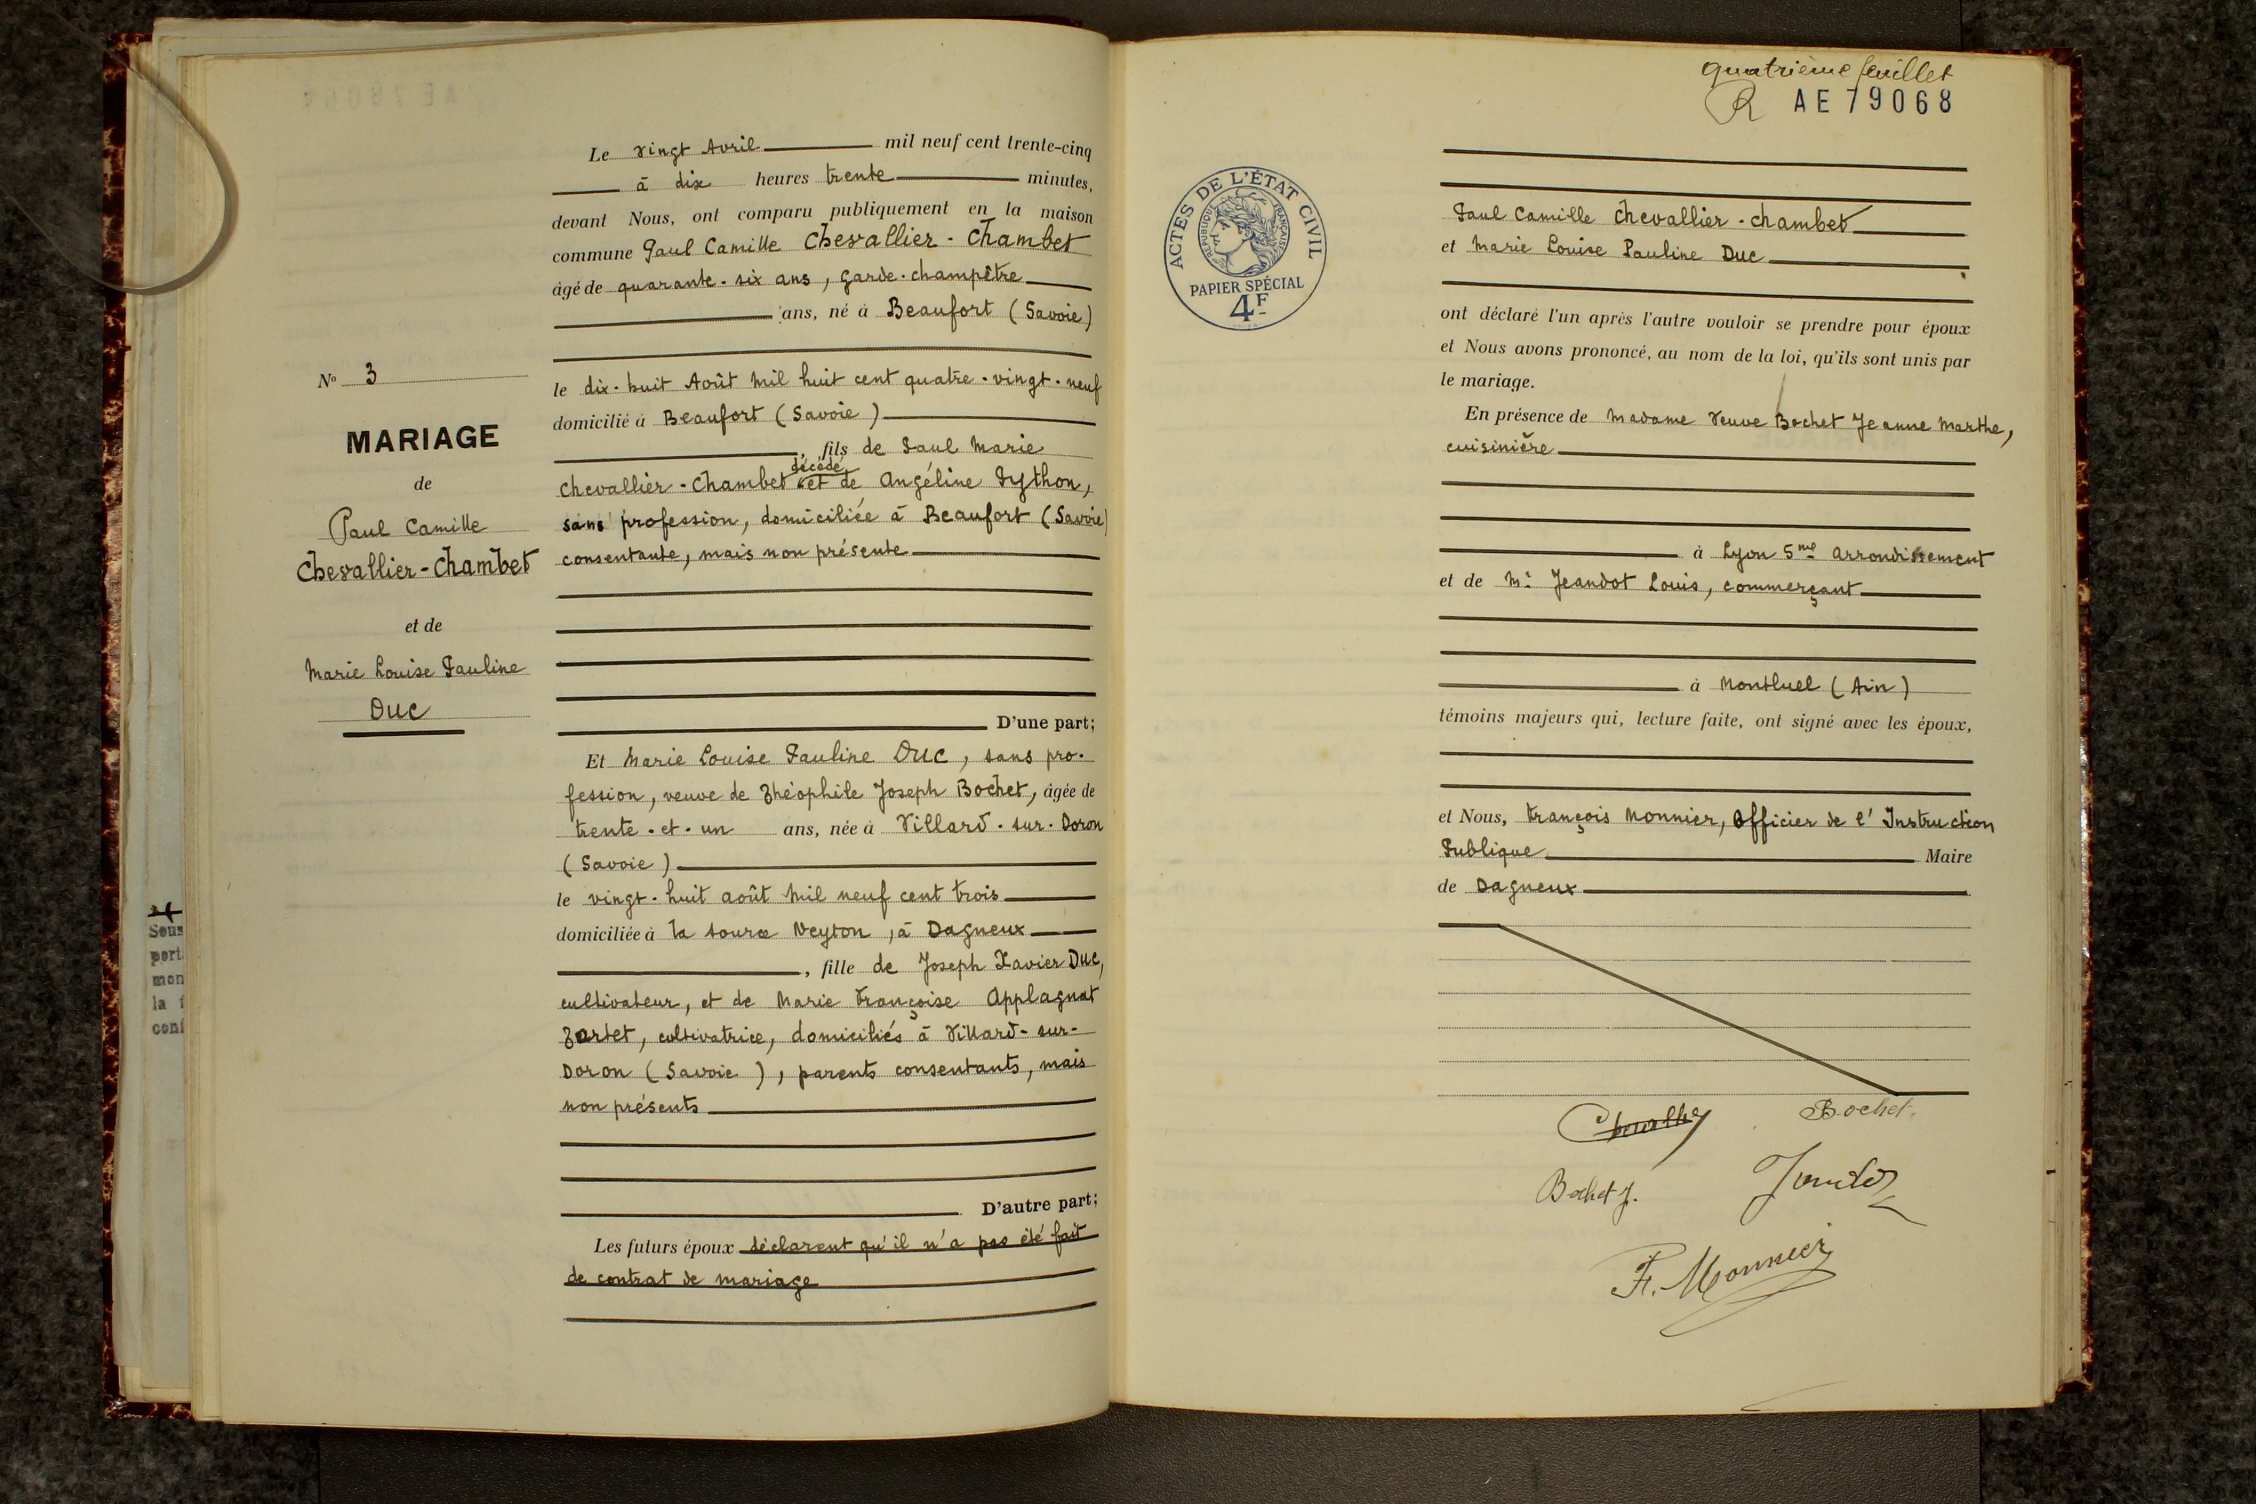 Le vingt Avril mil neuf cent trente-cinq
à dix heures trente minutes,
devant Nous, ont comparu publiquement en la maison
commune Paul Camille Chevallier-Chambet
âgé de quarante-six ans, Garde-champêtre
ans, né à Beaufort (Savoie)
le dix-huit Août mil huit cent quatre-vingt-neuf
domicilié à Beaufort (Savoie)
, fils de Paul Marie
décédé
Chevallier-Chambet et de Angéline Python,
sans profession, domiciliée à Beaufort (Savoie)
consentante, mais non présente
D'une part;
Et Marie Louise Pauline Duc, sans pro-
fession, veuve de Théophile Joseph Bochet, âgée de
trente-et-un ans, née à Villard-sur-Doron
(Savoie)
le vingt-huit août mil neuf cent trois
domiciliée à la source Neyton, à Dagneux
, fille de Joseph Xavier Duc,
cultivateur, et de Marie Françoise Applagnat
Tartet, cultivatrice, domiciliés à Villard-sur-
Doron (Savoie), parents consentants, mais
non présents
D'autre part;
Les futurs époux déclarent qu'il n'a pas été fait
de contrat de mariage
No 3
MARIAGE
de
Paul Camille
Chevallier-Chambet
et de
Marie Louise Pauline
Duc
quatrième feuillet
R AE 79068
ACTES DE L'ÉTAT CIVIL
RÉPUBLIQUE FRANÇAISE
PAPIER SPÉCIAL
4F
Paul Camille Chevallier-Chambet
et Marie Louise Pauline Duc
ont déclaré l'un après l'autre vouloir se prendre pour époux
et Nous avons prononcé, au nom de la loi, qu'ils sont unis par
le mariage.
En présence de Madame Veuve Bochet Jeanne Marthe,
cuisinière
à Lyon 5me Arrondissement
et de Mr Jeandot Louis, commerçant
à Montluel (Ain)
témoins majeurs qui, lecture faite, ont signé avec les époux,
et Nous, François Monnier, Officier de l'Instruction
Publique Maire
de Dagneux
Bochet
Bochet J.
F. Monnier
Sous
port
mon
la
conf